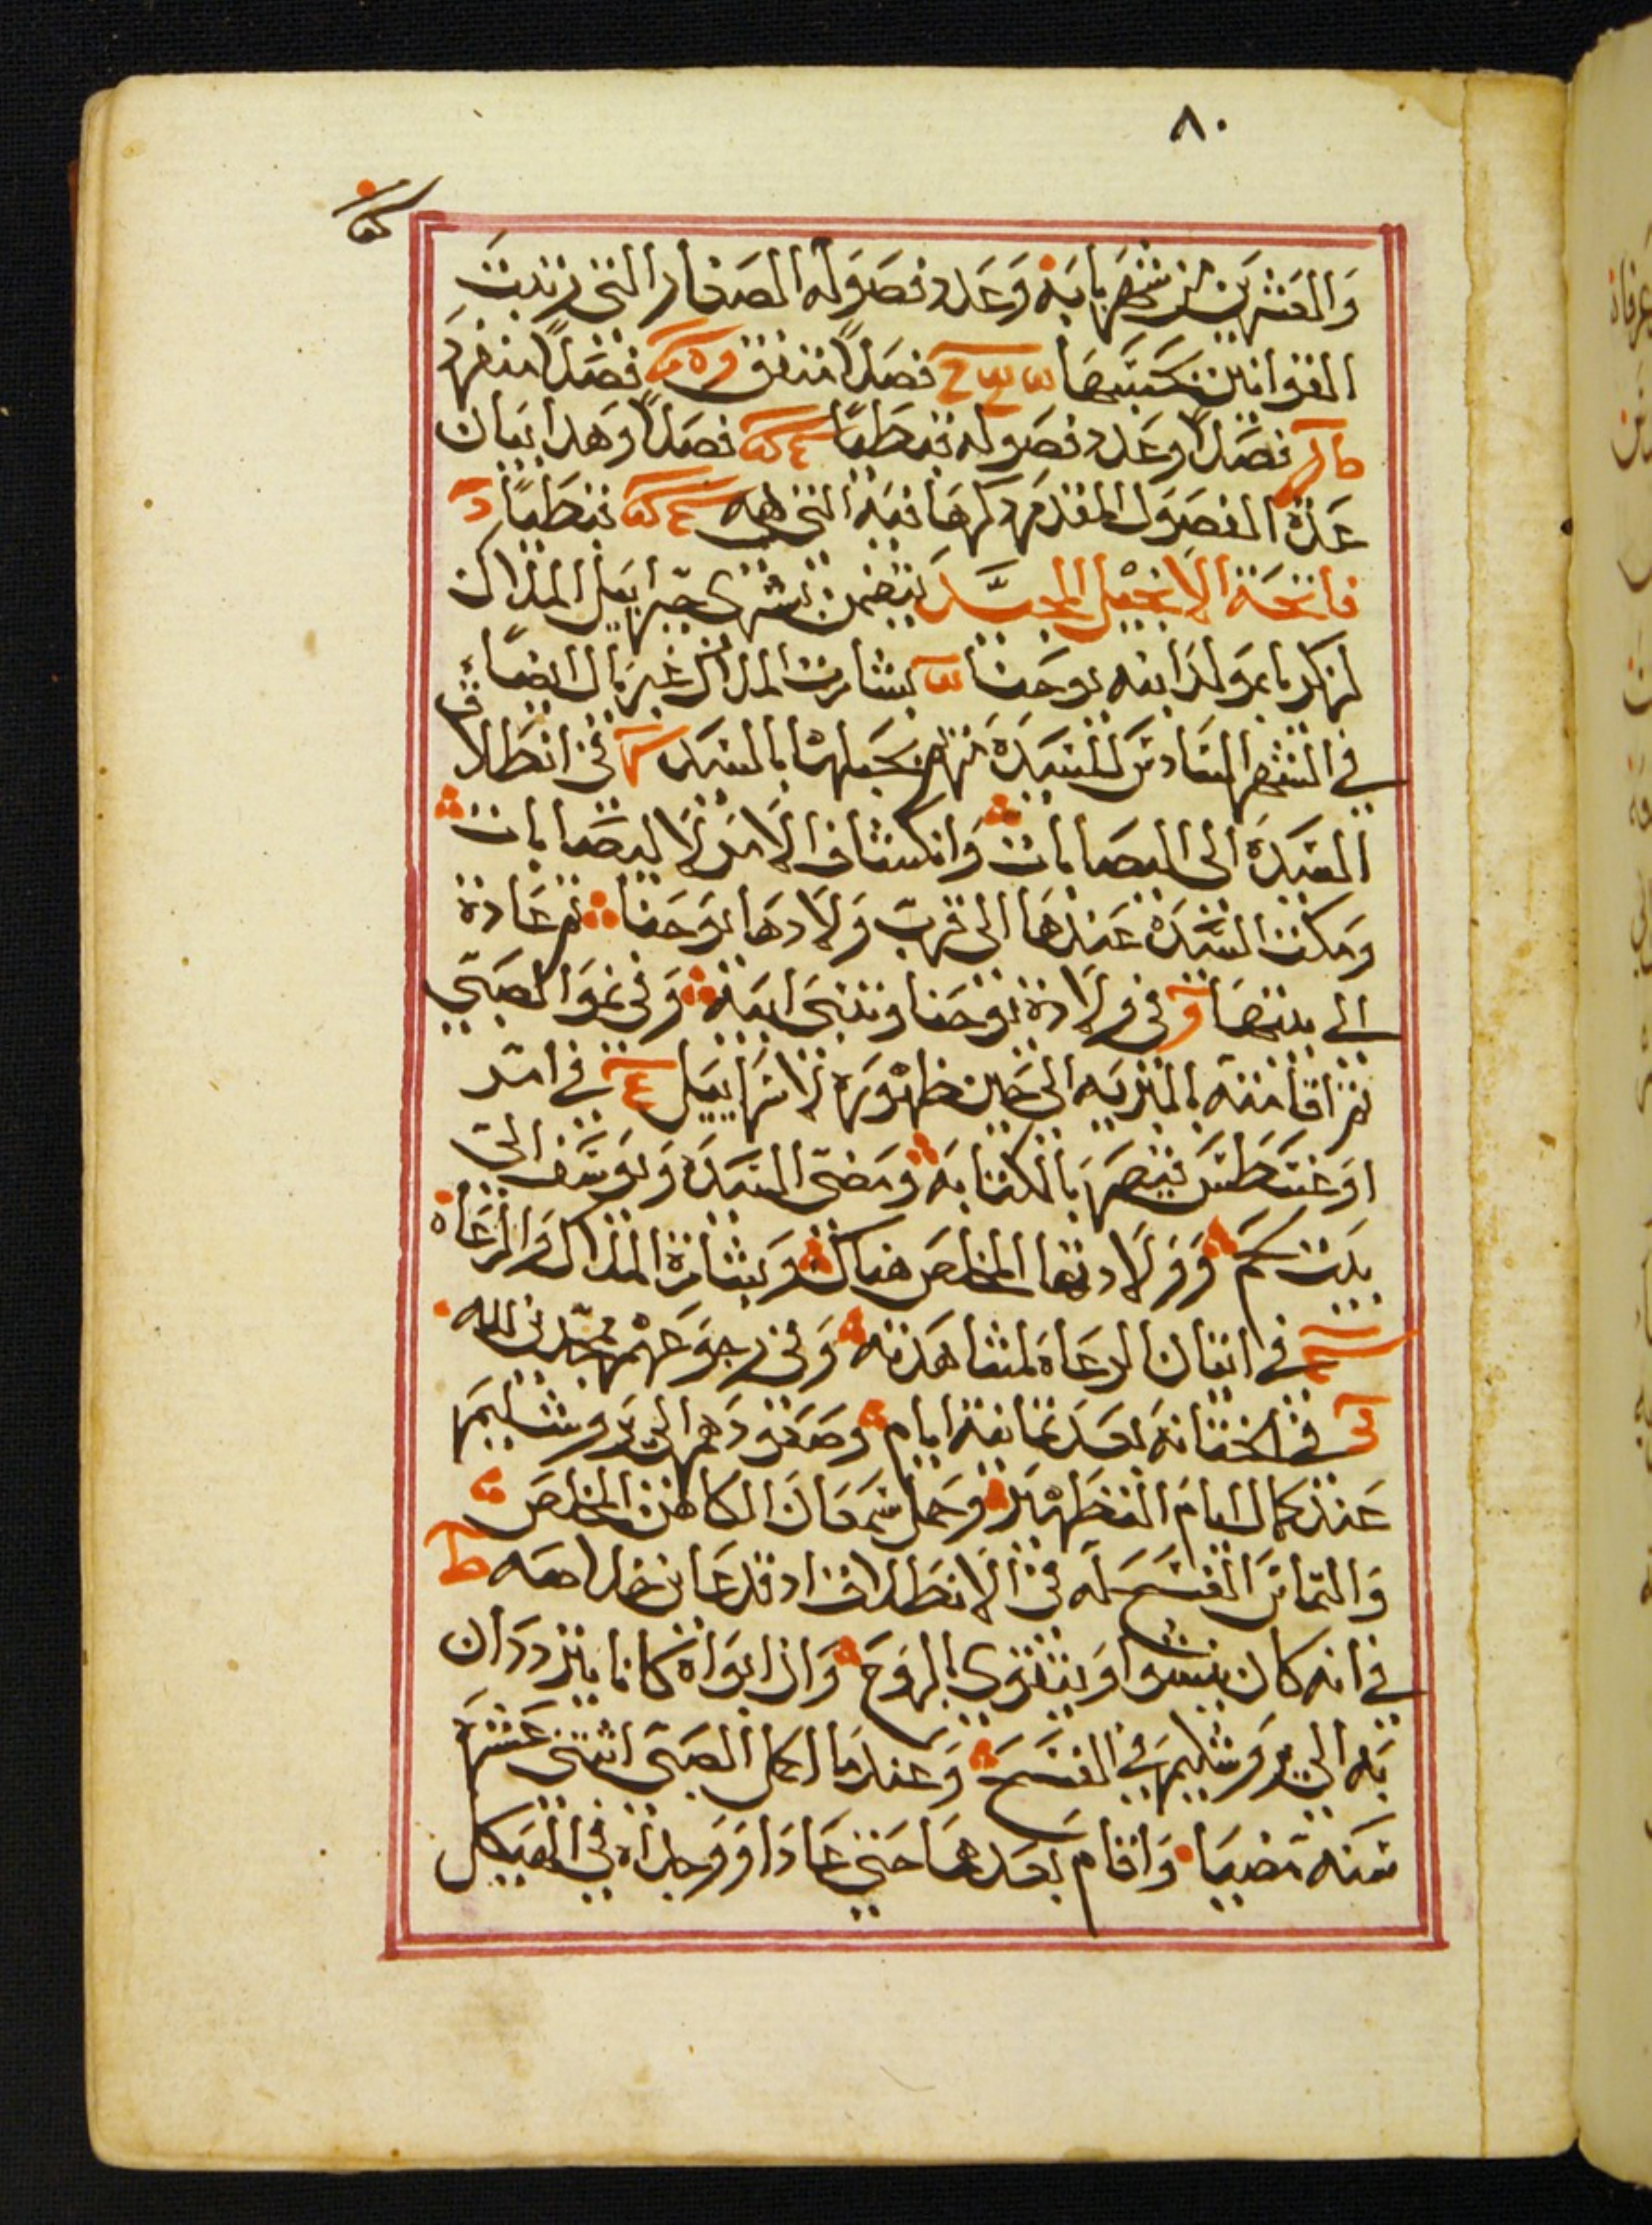 ٨٠
والعشرين من شهر بابه وعدد فصوله الصغار التي رتبت
القوانين بحسبها فصلاً متفق فصلاً منفرد
فصلاً وعدد فصوله قبطيًا فصلاً وهدا بيان
عدة الفصول المقدم دكرها فيه التي هي قبطيًا
فاتحة الانجيل المجيد يتضمن بشرى جبراييل الملاك
لزكريا بمولد ابنه يوحنا بشارت الملاك غبريال ايضًا
في الشهر السادس للسيدة مريم بحبلها بالسيد في انطلاق
السيدة الى اليصابات وانكشاف الامر لاليصابات
ومكث السيدة عندها الى قرب ولادها يوحنا ثم عادة
الى بيتها في ولادة يوحنا وتنبى ابيه وفي نمو الصبي
ثم اقامته بالبريه الى حين ظهوره لاسراييل في امر
اوغسطس قيصر بالكتابه ومضى السيدة ويوسف الى
بيت لحم وولادتها المخلص هناك وبشارة الملاك الرعاه
في اتيان الرعاه لمشاهدته وفي رجوعهم ممجدين الله
في الختانه بعد ثمانية ايام وصعودهم الى يروشليم
عند كمال ايام التطهير وحمل شمعان الكاهن المخلص
والتماس الفسح له في الانطلاق اد قد عاين خلاصه
في انه كان ينشوا ويتقوى بالروح وان ابواه كانا يترددان
به الى يروشليم في الفسح وعندما اكمل الصبى اثنتي عشره
سنه مضيا واقام بعدهما حتى عادا ووجداه في الهيكل